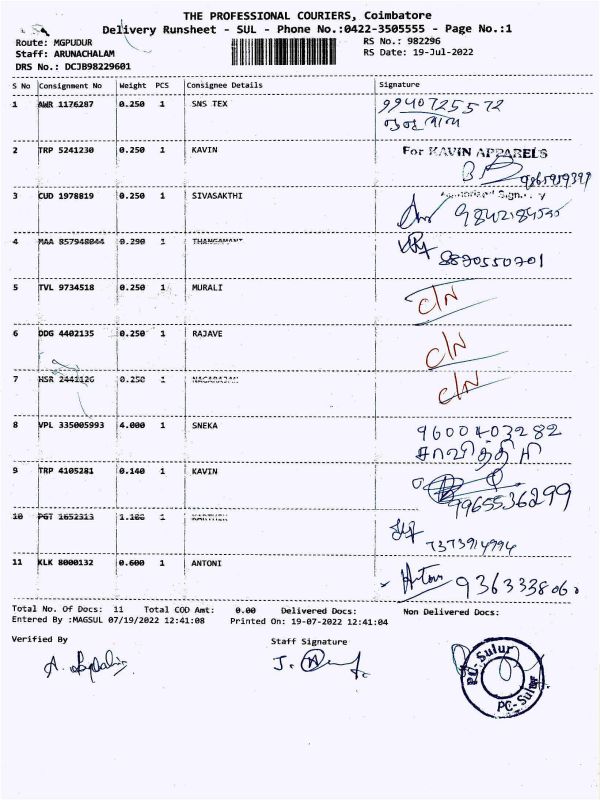 THE PROFESSIONAL COURIERS, Coimbatore
Delivery Runsheet - SUL - Phone No.:0422-3505555 - Page No.:1
Route: MGPUDUR RS No.: 982296
Staff: ARUNACHALAM RS Date: 19-Jul-2022
DRS No.: DCJB98229601
S No Consignment No Weight PCS Consignee Details Signature
1 AWR 1176287 0.250 1 SNS TEX 9940725572
2 TRP 5241230 0.250 1 KAVIN For KAVIN APPARELS
Authorised Signatory
3 CUD 1978819 0.250 1 SIVASAKTHI
4 MAA 857948044 0.290 1 THANGAMANI
8870550701
5 TVL 9734518 0.250 1 MURALI C/N
6 DDG 4402135 0.250 1 RAJAVE C/N
7 HSR 2441126 0.250 1 NAGARAJAN C/N
8 VPL 335005993 4.000 1 SNEKA 9600403282
சாவித்திரி
9 TRP 4105281 0.140 1 KAVIN
9965536299
10 PGT 1652313 1.180 1 KARTHIK
7373914994
11 KLK 8000132 0.600 1 ANTONI Antoni
Total No. Of Docs: 11 Total COD Amt: 0.00 Delivered Docs: Non Delivered Docs:
Entered By :MAGSUL 07/19/2022 12:41:08 Printed On: 19-07-2022 12:41:04
Verified By Staff Signature
PC-Sulur
PC-Sulur